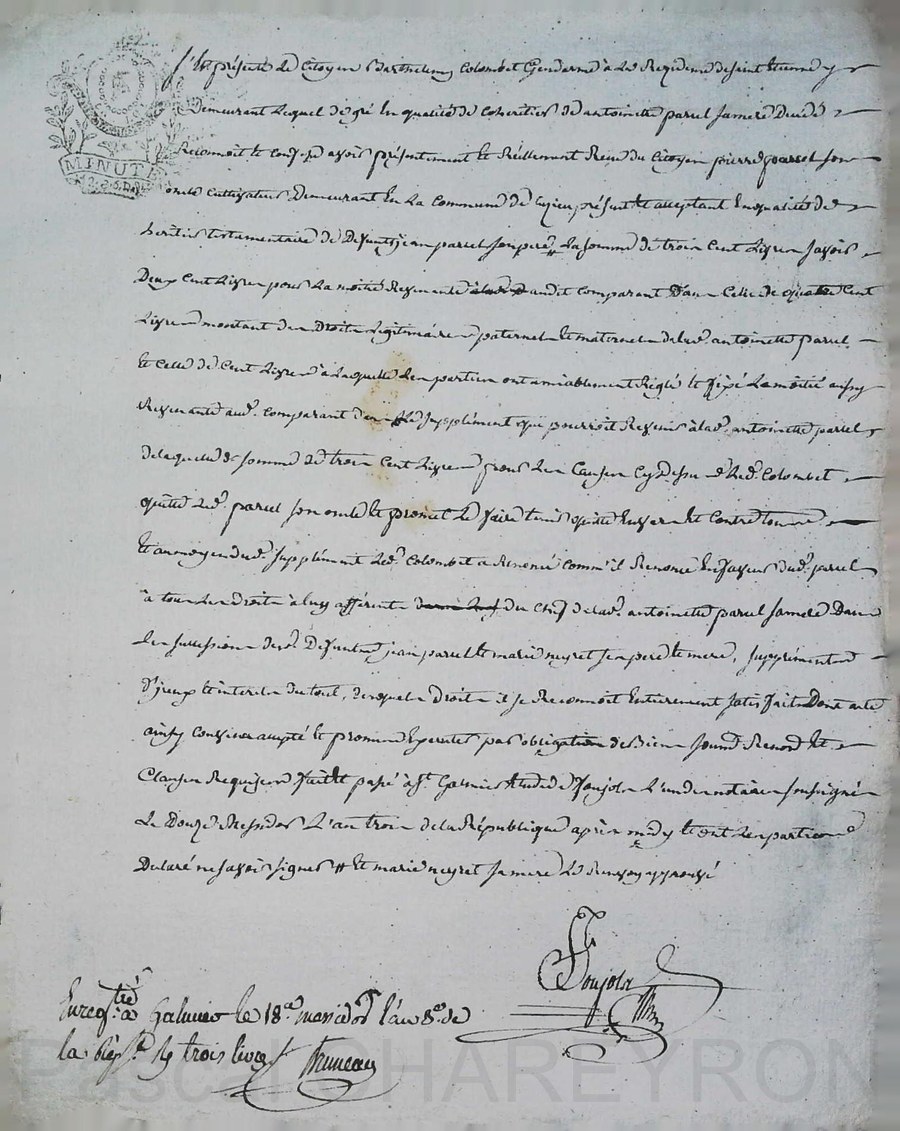 MINUTE
S'est présenté le Citoyen Barthelemy Colombet Gendarme à la Rezidence de saint Etienne y
Demeurant Lequel de gré En qualité de Coheritier de antoinette parcel sa mere Decedé
Reconnoit et Confesse avoir présentement et Réellement Recu du Citoyen pierre parcel son
oncle cultivateur Demeurant En La Commune de présent et acceptant En qualité de
heritier testamentaire de Defunt jean parcel son pere # La somme de trois Cent Livres savoir
Deux Cent Livres pour La moitié Revenante audit comparant Dans Celle de quatre Cent
Livres montant des Droits Légitimaires paternel et maternel de lad. antoinette parcel
et Celle de Cent Livres à Laquelle Les parties ont amiablement Réglé et fixé La moitié aussy
Revenante aud. Comparant dans Le supplément qui pourroit Revenir à lad. antoinette parcel
de laquelle de somme de trois Cent Livres pour Les Causes Cy Dessus Led. Colombet
quitte Led. parcel son oncle et promet Le faire tenir quitte Envers et Contre tous
et au moyen dud. supplément Led. Colombet a Renoncé comm'il Renonce En faveur dud. parcel
à tous Les Droits à luy afférents du Chef de lad. antoinette parcel sa mere Dans
Les successions desd. Defunts jean parcel et marie neyret ses pere et mere, supplément
D'jceux et interets du tout, desquels Droits il se Reconnoit Entierement satisfait Dont acte
ainsy convenu accepté et promis Executer par obligation de Biens soumis Renond. et
Clauses Requises fait et passé à St. Galmier Etude de Foujols L'un des notaires soussigné
Le Douze Messidor L'an trois de la République après midy et ont Les parties
Declaré ne savoir signer # et marie neyret sa mere Le Renvoy approuvé
Foujols
Enregtré à Galmier le 18e. messidor l'an 3e. de
la Rép. R. trois livres Bruneau
Pascal CHAREYRON